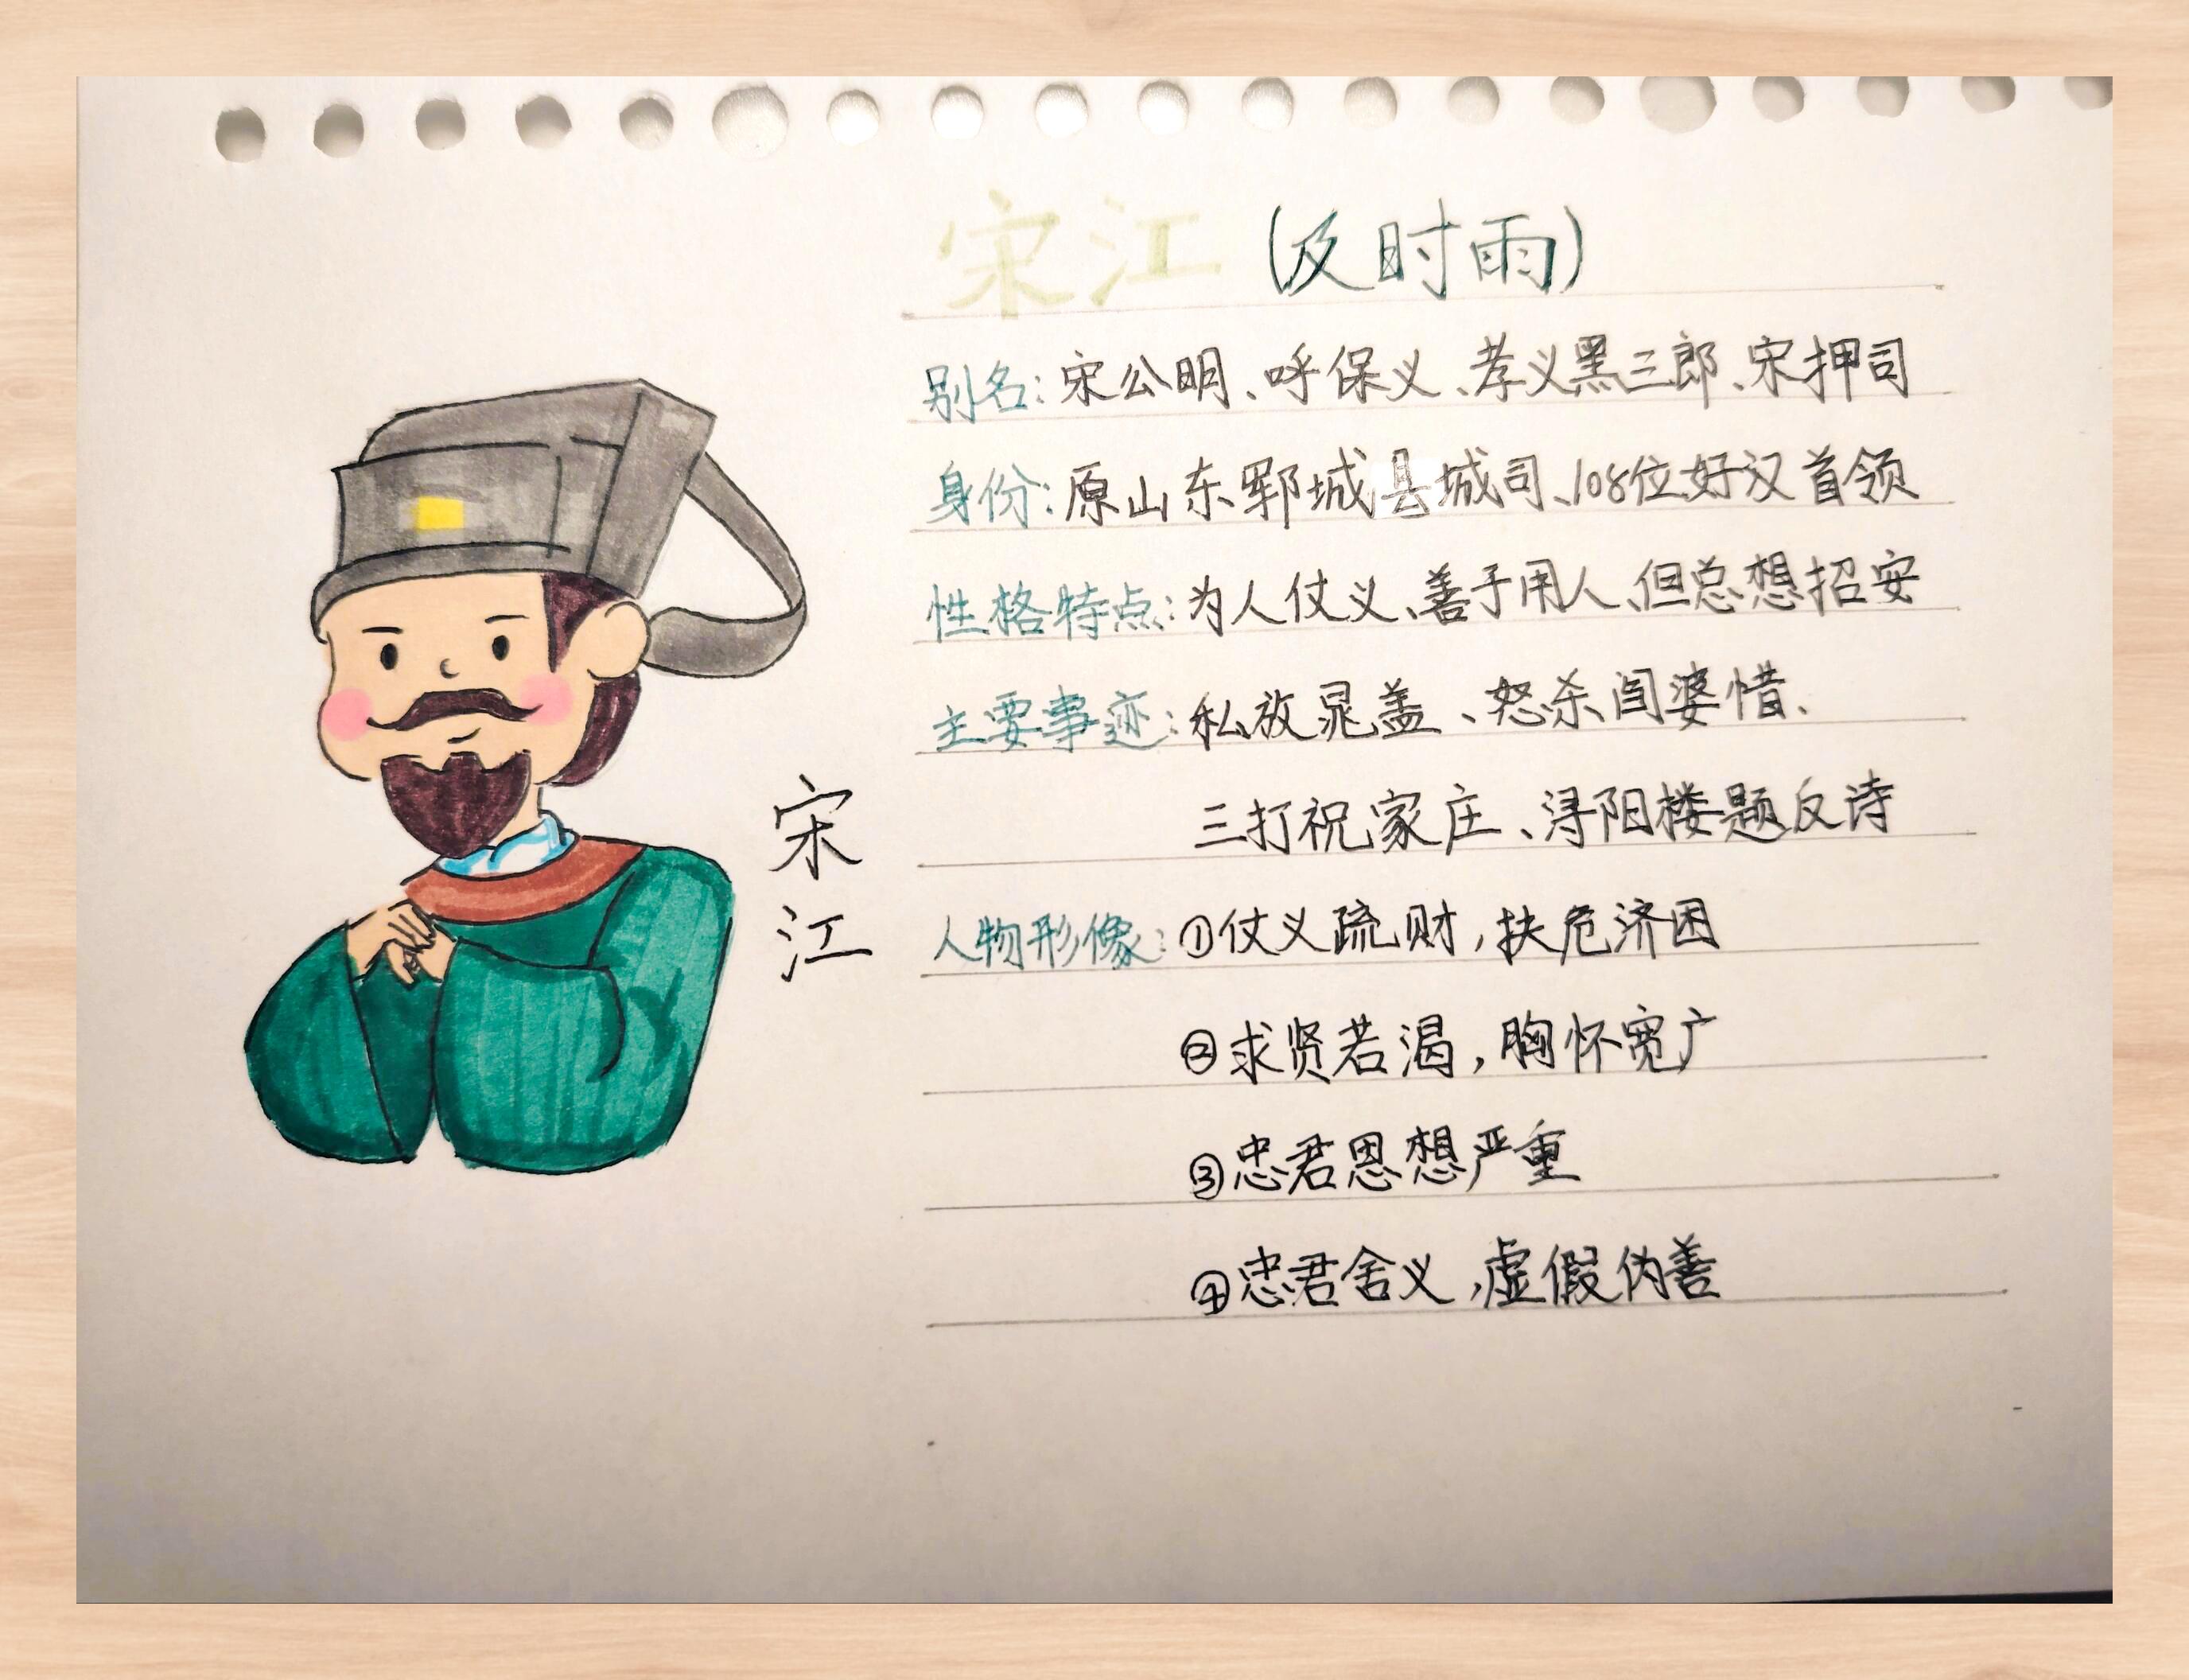 宋江(及时雨)
别名:宋公明、呼保义、孝义黑三郎、宋押司
身份:原山东郓城县城司、108位好汉首领
性格特点:为人仗义、善于用人、但总想招安
主要事迹:私放晁盖、怒杀阎婆惜、
三打祝家庄、浔阳楼题反诗
人物形像:①仗义疏财,扶危济困
②求贤若渴,胸怀宽广
③忠君思想严重
④忠君舍义,虚假伪善
宋
江